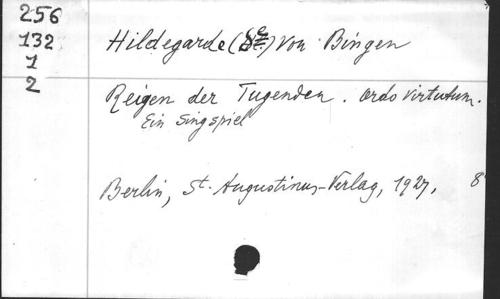 256
132
1
2
Hildegarde (Ste) von Bingen
Reigen der Tugenden. Ordo virtutum.
Ein Singspiel
Berlin, St. Augustinus-Verlag, 1927, 8°